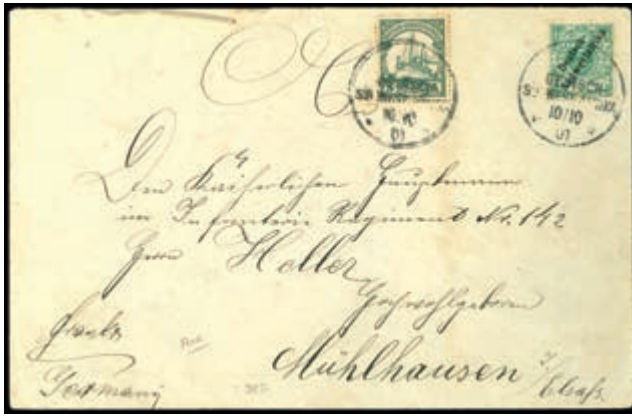 10/10
01
10/10
01
Den Kaiserlichen Hauptmann
im Infanterie Regiment No. 142
Herrn Holler
Hochwohlgeboren
Mühlhausen i/
Elsaß.
Germany